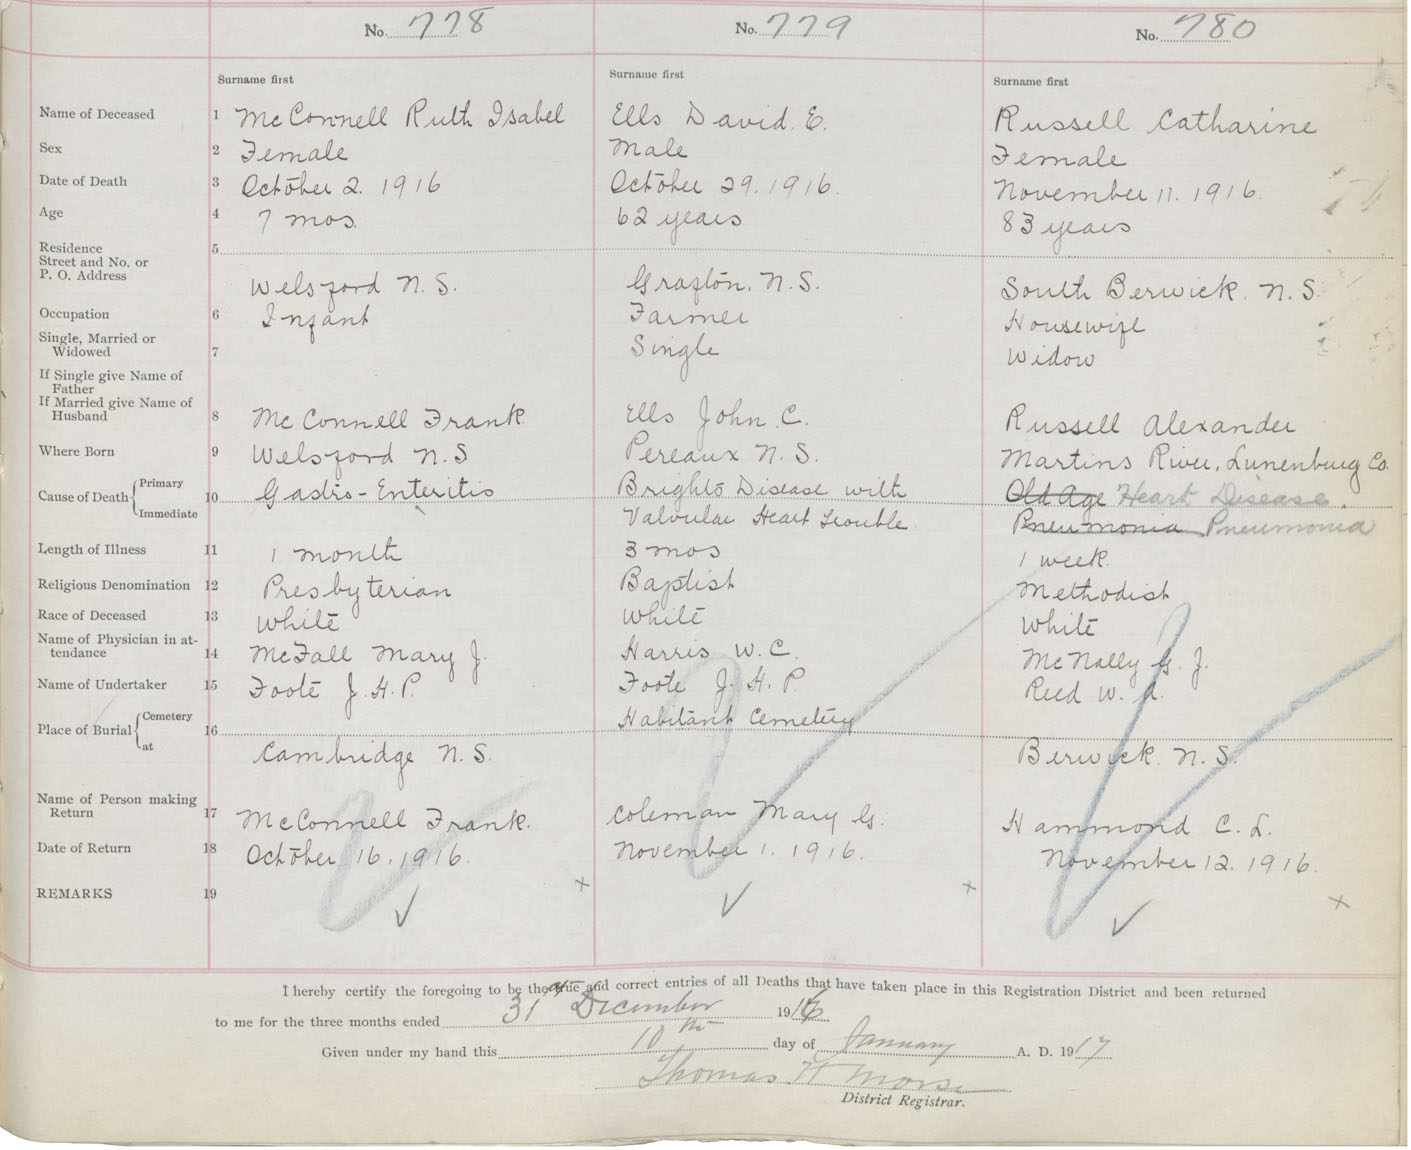 No. 778 No. 779 No. 780
Surname first Surname first Surname first
Name of Deceased 1 McConnell Ruth Isabel Ells David. E. Russell Catharine
Sex 2 Female Male Female
Date of Death 3 October 2. 1916 October 29. 1916. November 11. 1916.
Age 4 7 mos. 62 years 83 years
Residence 5
Street and No. or
P. O. Address Welsford N. S. Grafton. N. S. South Berwick. N. S.
Occupation 6 Infant Farmer Housewife
Single, Married or
Widowed 7 Single Widow
If Single give Name of
Father
If Married give Name of
Husband 8 McConnell Frank. Ells John. C. Russell Alexander
Where Born 9 Welsford N. S Pereaux N. S. Martins River, Lunenburg Co.
Cause of Death Primary 10 Gastro-Enteritis Brights Disease with Old Age Heart Disease.
Immediate Valvular Heart Trouble. Pneumonia Pneumonia
Length of Illness 11 1 month 3 mos 1 week.
Religious Denomination 12 Presbyterian Baptist Methodist
Race of Deceased 13 White White White
Name of Physician in at-
tendance 14 McFall Mary J. Harris W. C. McNally G. J.
Name of Undertaker 15 Foote J. H. P. Foote J. H. P. Reed W. A.
Place of Burial Cemetery 16 Habitant Cemetery
at Cambridge N. S. Berwick. N. S.
Name of Person making
Return 17 McConnell Frank. Coleman Mary G. Hammond C. L.
Date of Return 18 October 16, 1916. November 1. 1916. November 12. 1916.
REMARKS 19
I hereby certify the foregoing to be the true and correct entries of all Deaths that have taken place in this Registration District and been returned
to me for the three months ended 31st December 1916
Given under my hand this 10th day of January A. D. 1917
Thomas H Morse
District Registrar.